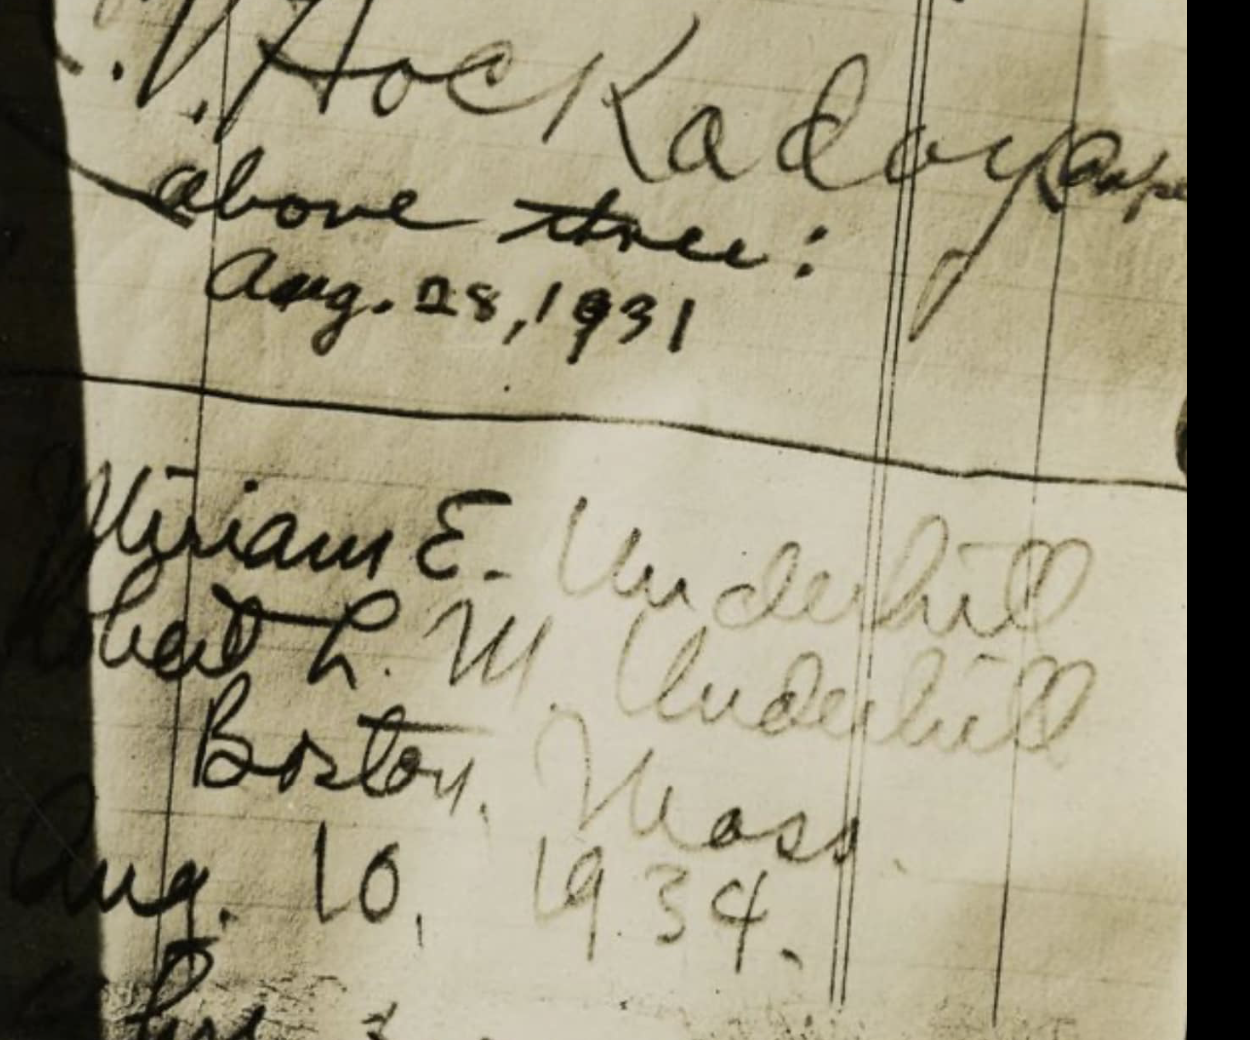 . V. Hockaday
above three:
Aug. 28, 1931
Miriam E. Underhill
Robert L. M. Underhill
Boston, Mass.
Aug. 10, 1934.